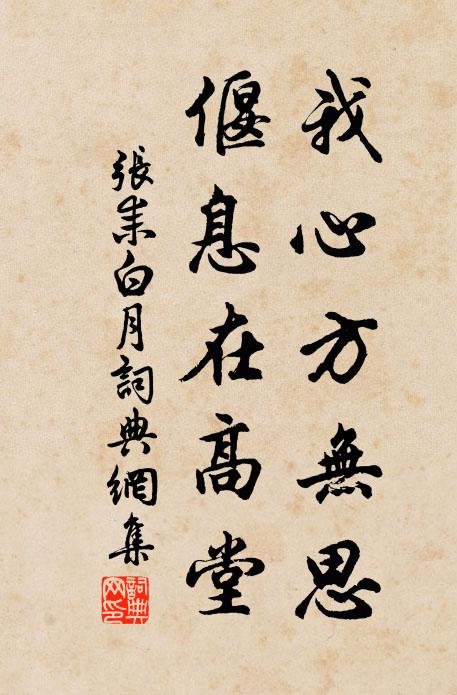 我心方無思
偃息在高堂
張耒白月詞典網集
詞典網印